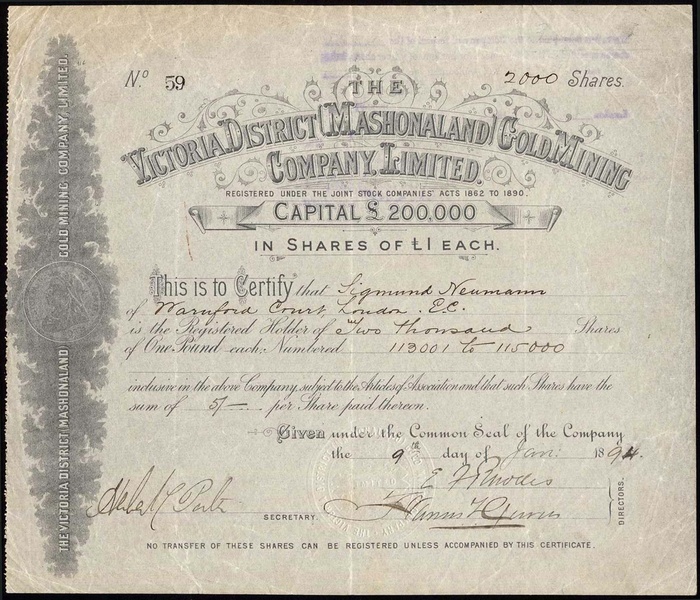 Nº 59
2000 Shares.
THE
VICTORIA DISTRICT (MASHONALAND) GOLD MINING
COMPANY, LIMITED.
REGISTERED UNDER THE JOINT STOCK COMPANIES' ACTS 1862 TO 1890.
CAPITAL £ 200,000
IN SHARES OF £1 EACH.
This is to Certify that Sigmund Neumann
of Warnford Court, London. E.C.
is the Registered Holder of Two thousand Shares
of One Pound each, Numbered 113001 to 115000
inclusive in the above Company, subject to the Articles of Association and that such Shares have the
sum of 5/— per Share paid thereon.
Given under the Common Seal of the Company
the 9th day of Jan: 1894.
E F Rhodes
DIRECTORS.
SECRETARY.
NO TRANSFER OF THESE SHARES CAN BE REGISTERED UNLESS ACCOMPANIED BY THIS CERTIFICATE.
THE VICTORIA DISTRICT (MASHONALAND) GOLD MINING COMPANY, LIMITED.